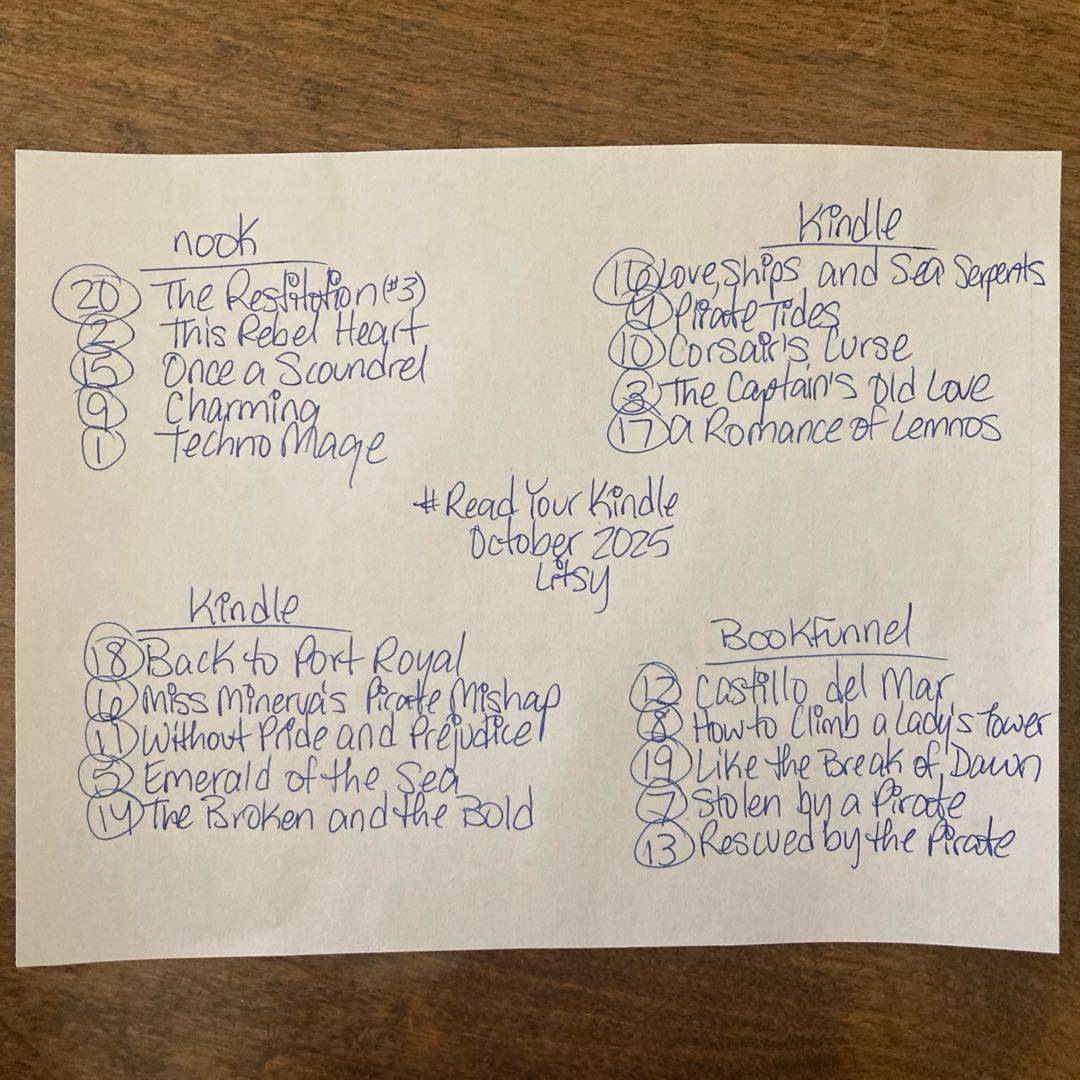 nook
20 The Restitution (#3)
2 This Rebel Heart
15 Once a Scoundrel
9 Charming
1 Techno Mage
Kindle
16 Love, Ships and Sea Serpents
4 Pirate Tides
10 Corsair's Curse
3 The Captain's Old Love
17 A Romance of Lemnos
#Read Your Kindle
October 2025
Litsy
Kindle
18 Back to Port Royal
6 Miss Minerva's Pirate Mishap
11 Without Pride and Prejudice
5 Emerald of the Sea
14 The Broken and the Bold
Bookfunnel
12 Castillo del Mar
8 How to Climb a Lady's Tower
19 Like the Break of Dawn
7 Stolen by a Pirate
13 Rescued by the Pirate